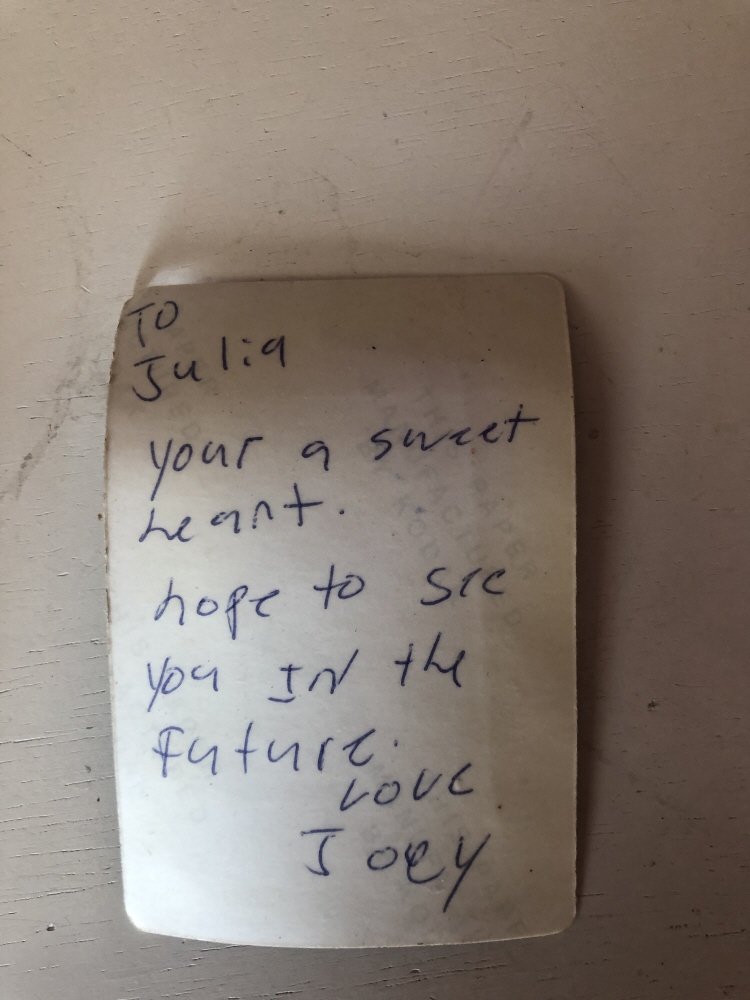 TO
Julia
your a sweet
heart.
hope to see
you IN the
future.
Love
Joey